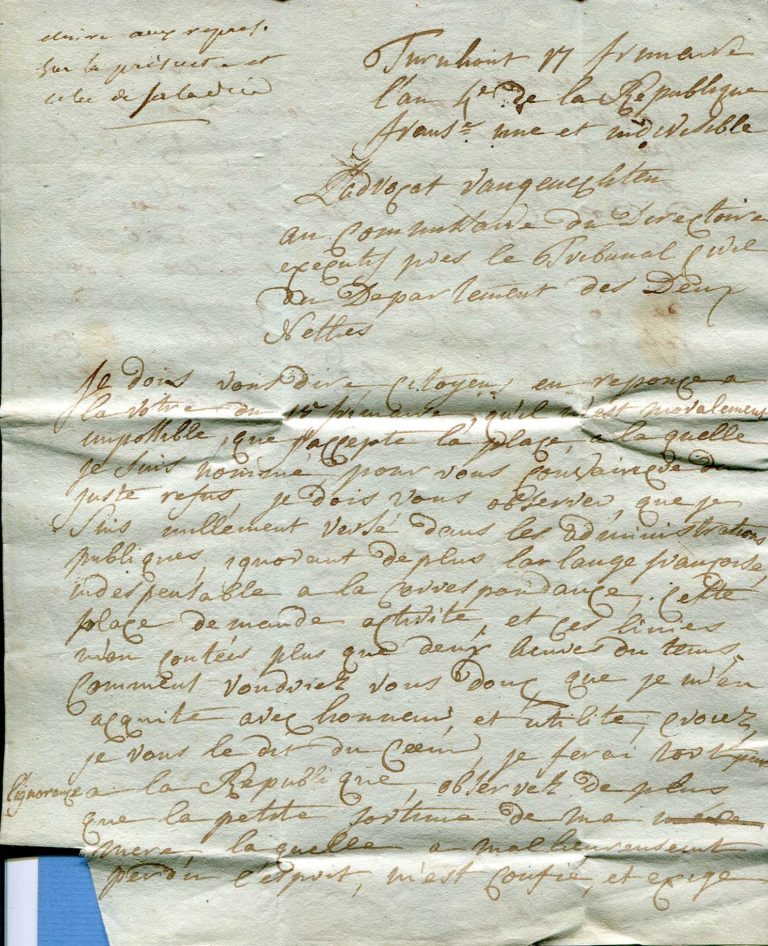 aux repres.
sur la presente et
celle de
Turnhout 17 frimaire
l'an 4e de la Republique
frans.e une et indivisible
L'advocat vangenechten
au commissaire du Directoire
executif pres le Tribunal civil
du Departement des Deux
Nethes
Je dois vous dire, citoyen, en reponce a
la votre du 15 frimaire, qu'il m'est moralement
impossible, que j'accepte la place, a la quelle
je suis nommé, pour vous convaincre du
juste refus, je dois vous observer, que je
suis nullement versé dans les administrations
publiques, ignorant de plus la lange françoise,
indespensable a la correspondance, cette
place demande activité, et ces linies
m'on coutées plus que deux heures du tems,
comment voudriez vous donc, que je m'en
acquite avec honneur, et utilité, croiez,
je vous le dit du coeur, je ferai tort par
l'ignorance a la Republique, observez de plus
que la petite fortune de ma
mere laquelle a malheureusement
perdu l'esprit, m'est confie, et exige